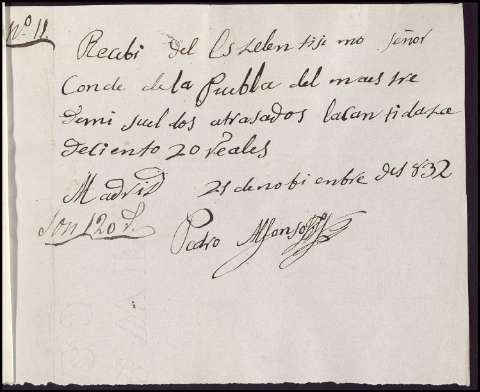 Nº 11
Recibi del Eszelentisimo señor
Conde de la Puebla del maestre
demi sueldos atrasados lacantidaz de
deciento 20 reales
Madrid 21 de nobienbre del 832
Son 120 r.
Pedro Alfonso